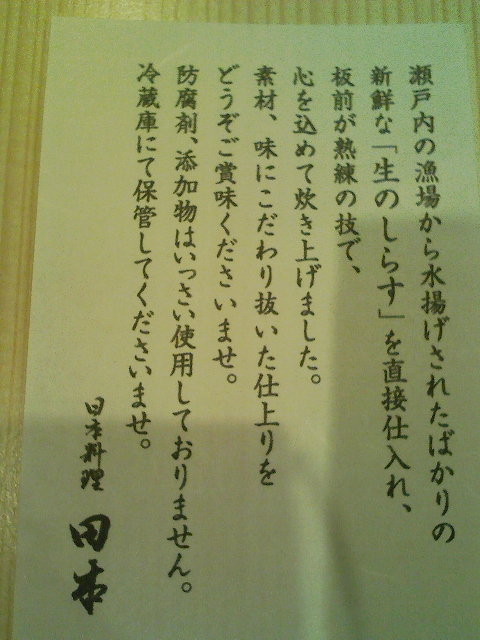 瀬戸内の漁場から水揚げされたばかりの
新鮮な「生のしらす」を直接仕入れ、
板前が熟練の技で、
心を込めて炊き上げました。
素材、味にこだわり抜いた仕上りを
どうぞご賞味くださいませ。
防腐剤、添加物はいっさい使用しておりません。
冷蔵庫にて保管してくださいませ。
日本料理 田本